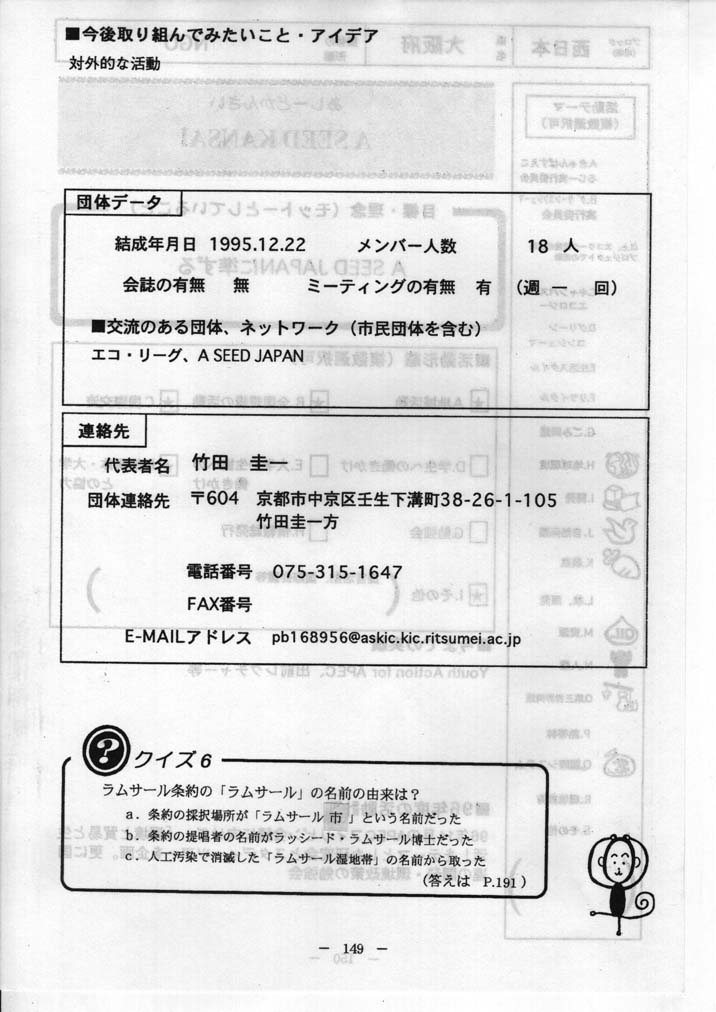 ■今後取り組んでみたいこと・アイデア
対外的な活動
団体データ
結成年月日 1995.12.22 メンバー人数 18 人
会誌の有無 無 ミーティングの有無 有 (週 一 回)
■交流のある団体、ネットワーク(市民団体を含む)
エコ・リーグ、A SEED JAPAN
連絡先
代表者名 竹田 圭一
団体連絡先 〒604 京都市中京区壬生下溝町38-26-1-105
竹田圭一方
電話番号 075-315-1647
FAX番号
E-MAILアドレス pb168956@askic.kic.ritsumei.ac.jp
? クイズ6
ラムサール条約の「ラムサール」の名前の由来は?
a. 条約の採択場所が「ラムサール 市 」という名前だった
b. 条約の提唱者の名前がラッシード・ラムサール博士だった
c. 人工汚染で消滅した「ラムサール湿地帯」の名前から取った
(答えは P.191)
- 149 -